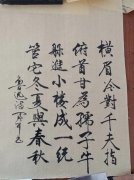 横眉冷對千夫指
俯首甘為孺子牛
躲進小樓成一統
管它冬夏與春秋
魯迅詩